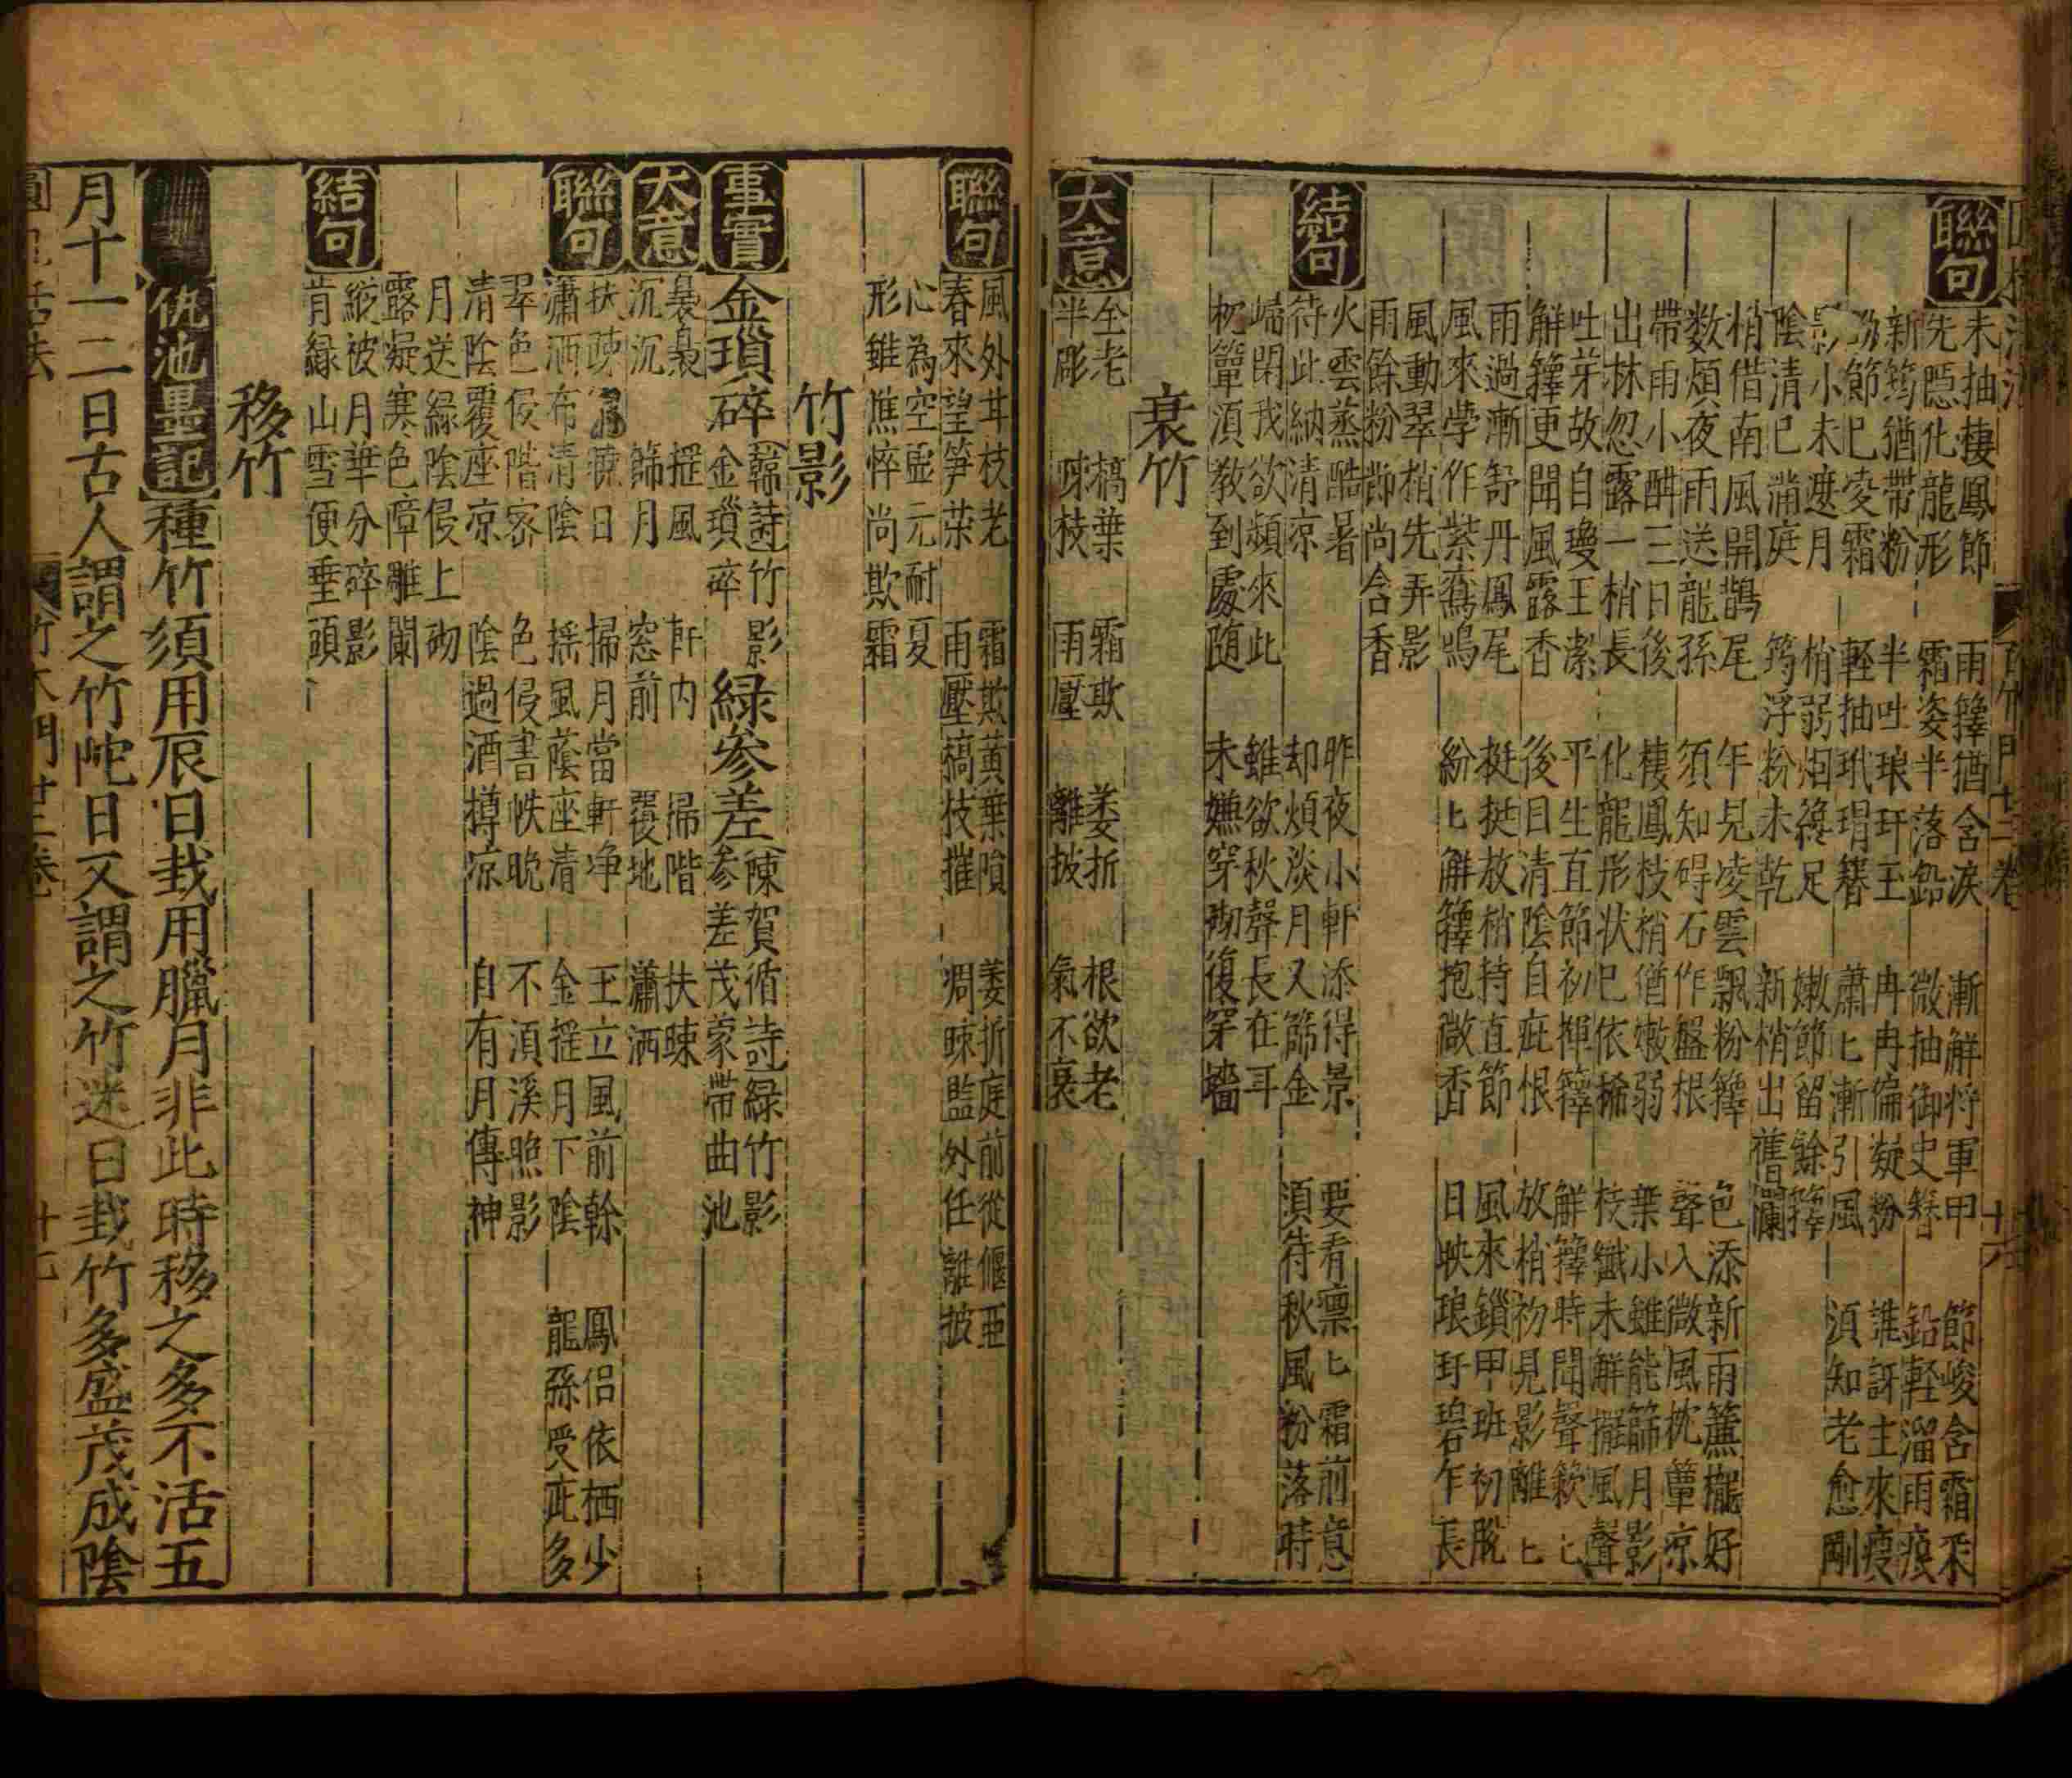 聯句
未抽棲鳳節 雨籜猶含淚 漸解将軍甲 節峻含霜釆
先隠化龍形 霜姿半落鉛 微抽御史簪 鉛軽溜雨痕
新筠猶帶粉 半吐琅玕玉 冉冉偏凝粉 誰訝主來瘦
節巳凌霜 軽抽玳瑁簪 蕭匕漸引風 湏知老愈剛
影小未遮月 梢弱烟縁足 嫩節留餘籜
陰清巳滿庭 筠浮粉未乾 新梢出舊闌
梢借南風開鵲尾 年見凌雲飄粉籜 色添新雨簾櫳好
数煩夜雨送龍孫 須知碍石作盤根 聲入微風枕簟凉
帶雨小酣三日後 棲鳳枝梢猶嫩弱 葉小雖能篩月影
出林忽露一梢長 化龍形状巳依稀 枝纖未解擺風聲
吐芽故自瓊玉潔 平生直節初揮籜 解籜時聞聲簌匕
解籜更聞風露香 後日清陰自庇恨 放梢初見影離匕
雨過漸舒丹鳳尾 挺挺放梢持直節 風來鎖甲班初脫
風來學作紫鸞鳴 紛匕解籜抱微香 日映琅玕碧乍長
風動翠梢先弄影
雨餘粉節尚含香
結句
火雲蒸酷暑 昨夜小軒添得景 要看凛匕霜前意
待此納清凉 却煩淡月又篩金 湏待秋風粉落時
閑我欲頻來此 雖欲秋聲長在耳
枕簟湏教到處随 未嫌穿砌復穿墻
衰竹
大意
全老 槁葉 霜欺 萎折 根欲老
半彫 踈枝 雨壓 離披 氣不衰
聯句
風外並枝老 霜欺黄葉隕 萎折庭前從偃亜
春來望笋荣 雨壓槁枝摧 凋踈監外任離披
心為空虛元耐夏
形雖憔悴尚欺霜
竹影
事實
金瑣碎 韓詩竹影金瑣碎 緑參差 陳賀循詩緑竹影参差茂蒙帶曲池
大意
裊裊 揺風 軒内 掃階 扶踈
沉沉 篩月 窓前 覆地 瀟洒
聯句
扶踈 日 掃月當軒净 玉立風前幹 鳳侣依栖少
瀟洒布清陰 揺風蔭座清 金揺月下陰 龍孫受庇多
翠色侵階宻 色侵書帙晩 不湏溪照影
清陰覆座凉 陰過酒樽凉 自有月傳神
月送緑陰侵上砌
露凝寒色障雕闌
結句
縱被月華分碎影
肯緑山雪便垂頭
移竹
仇池墨記 種竹須用辰日栽用臘月非此時移之多不活五
月十一二日古人謂之竹陀日又謂之竹迷日栽竹多盛茂成陰